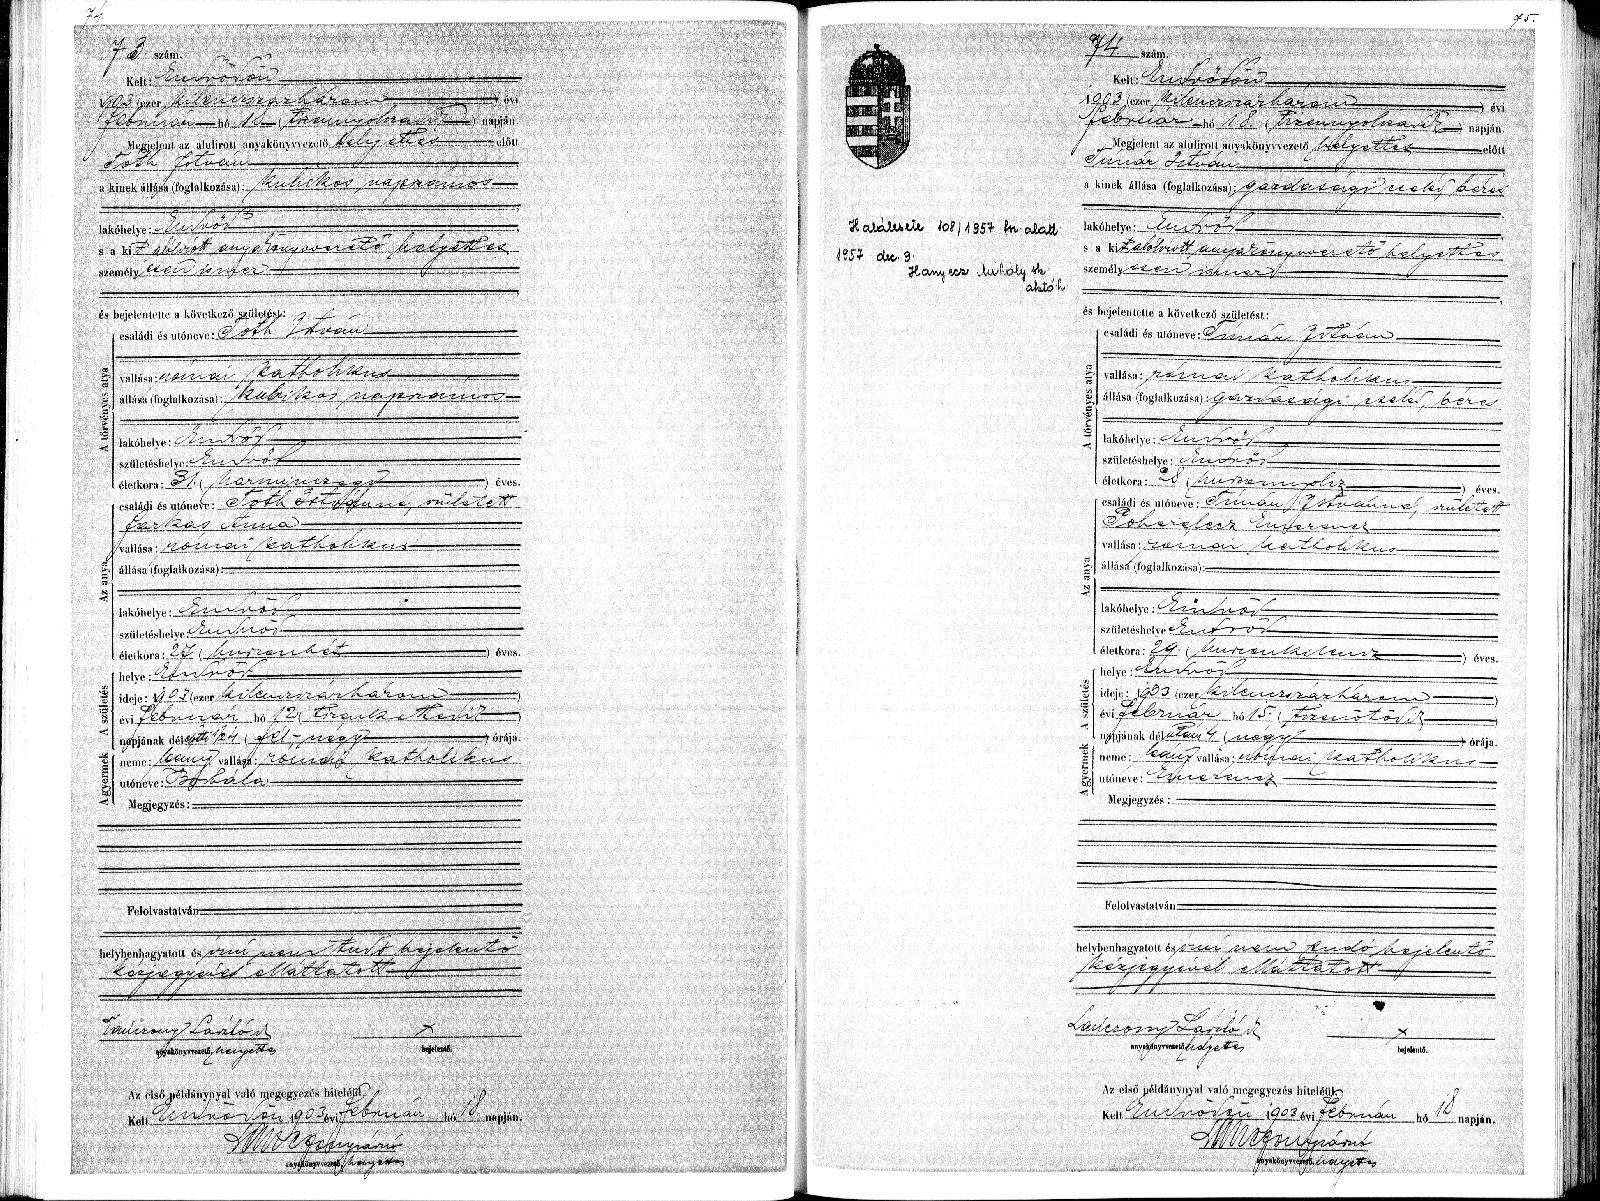 74.
73 szám.
Kelt: Endrődön
1903 (ezer kilenczszázhárom) évi
február hó 18 (tizennyolczadik) napján.
Megjelent az alulirott anyakönyvvezető helyettes előtt
Tóth István
a kinek állása (foglalkozása): kubikos napszámos
lakóhelye: Endrőd
s a kit alólirott anyakönyvvezető helyettes
személyesen ismer
és bejelentette a következő születést:
A törvényes atya
családi és utóneve: Tóth István
vallása: római katholikus
állása (foglalkozása): kubikos napszámos
lakóhelye: Endrőd
születéshelye: Endrőd
életkora: 31 (harminczegy) éves.
Az anya
családi és utóneve: Tóth Istvánné, született
Farkas Anna
vallása: római katholikus
állása (foglalkozása):
lakóhelye: Endrőd
születéshelye: Endrőd
életkora: 27 (huszonhét) éves.
A születés
helye: Endrőd
ideje: 1903 (ezer kilenczszázhárom)
évi február hó 12 (tizenkettedik)
napjának dél előtti 1/24 (fél négy) órája.
A gyermek
neme: leány vallása: római katholikus
utóneve: Borbála
Megjegyzés:
Felolvastatván
helybenhagyatott és irni nem tudó bejelentő
kézjegyével elláttatott
László
anyakönyvvezető helyettes
x
bejelentő.
Az első példánynyal való megegyezés hiteléül
Kelt Endrődön 1903 évi február hó 18 napján.
anyakönyvvezető helyettes
75.
Halálesete 108/1957 fsz. alatt
1957 dec. 9.
Hanyecz Mihály sk
aktóh
74 szám.
Kelt: Endrődön
1903 (ezer kilenczszázhárom) évi
február hó 18. (tizennyolczadik) napján.
Megjelent az alulirott anyakönyvvezető helyettes előtt
Timár István
a kinek állása (foglalkozása): gazdasági cseléd, béres
lakóhelye: Endrőd
s a kit alólirott anyakönyvvezető helyettes
személyesen ismer
és bejelentette a következő születést:
A törvényes atya
családi és utóneve: Timár István
vallása: római katholikus
állása (foglalkozása): gazdasági cseléd, béres
lakóhelye: Endrőd
születéshelye: Endrőd
életkora: 28 (huszonnyolcz) éves.
Az anya
családi és utóneve: Timár Istvánné, született
Emerencz
vallása: római katholikus
állása (foglalkozása):
lakóhelye: Endrőd
születéshelye Endrőd
életkora: 29 (huszonkilencz) éves.
A születés
helye: Endrőd
ideje: 1903 (ezer kilenczszázhárom)
évi február hó 15. (tizenötödik)
napjának dél utáni 4 (négy) órája.
A gyermek
neme: leány vallása: római katholikus
utóneve: Emerencz
Megjegyzés:
Felolvastatván
helybenhagyatott és irni nem tudó bejelentő
kézjegyével elláttatott
László
anyakönyvvezető helyettes
x
bejelentő.
Az első példánynyal való megegyezés hiteléül
Kelt Endrődön 1903 évi február hó 18 napján.
anyakönyvvezető helyettes